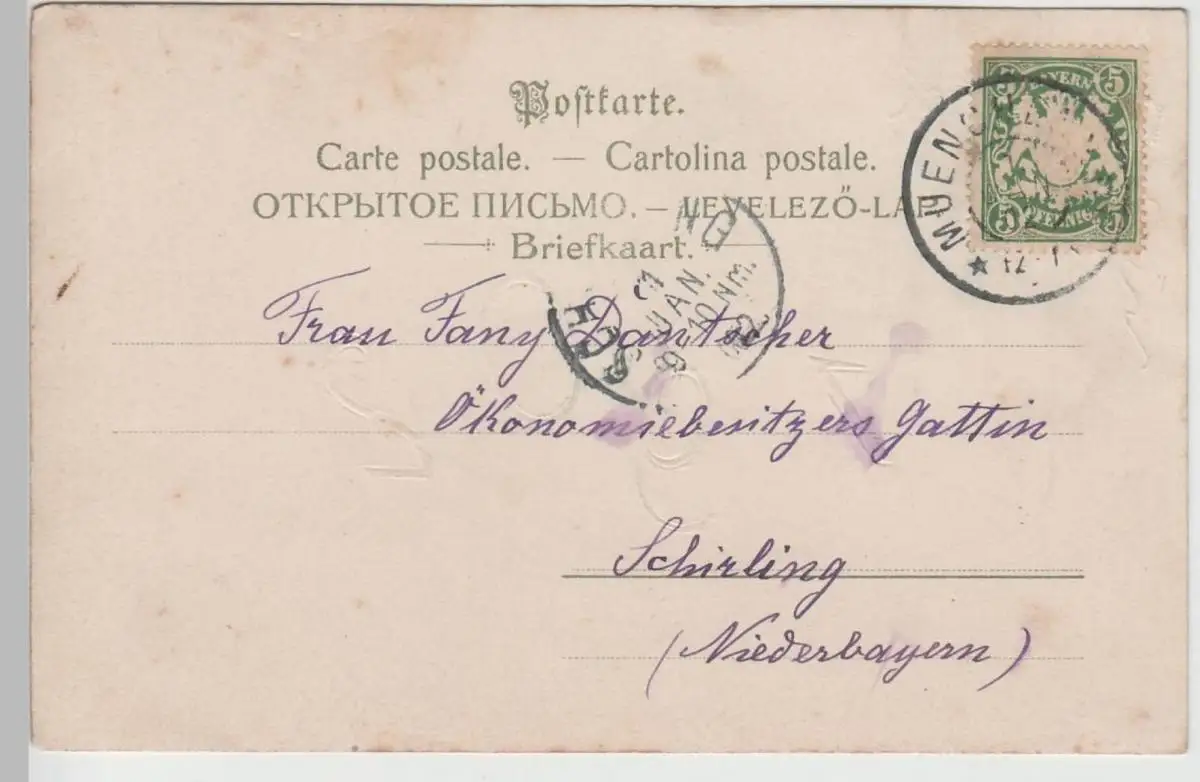 Postkarte.
Carte postale. — Cartolina postale.
ОТКРЫТОЕ ПИСЬМО. — LEVELEZŐ-LAP
Briefkaart.
5 BAYERN 5
5 5
MUENCHEN
1 JAN.
9-10 Nm.
02
Frau Fany Dantscher
Ökonomiebesitzers Gattin
Schirling
(Niederbayern)